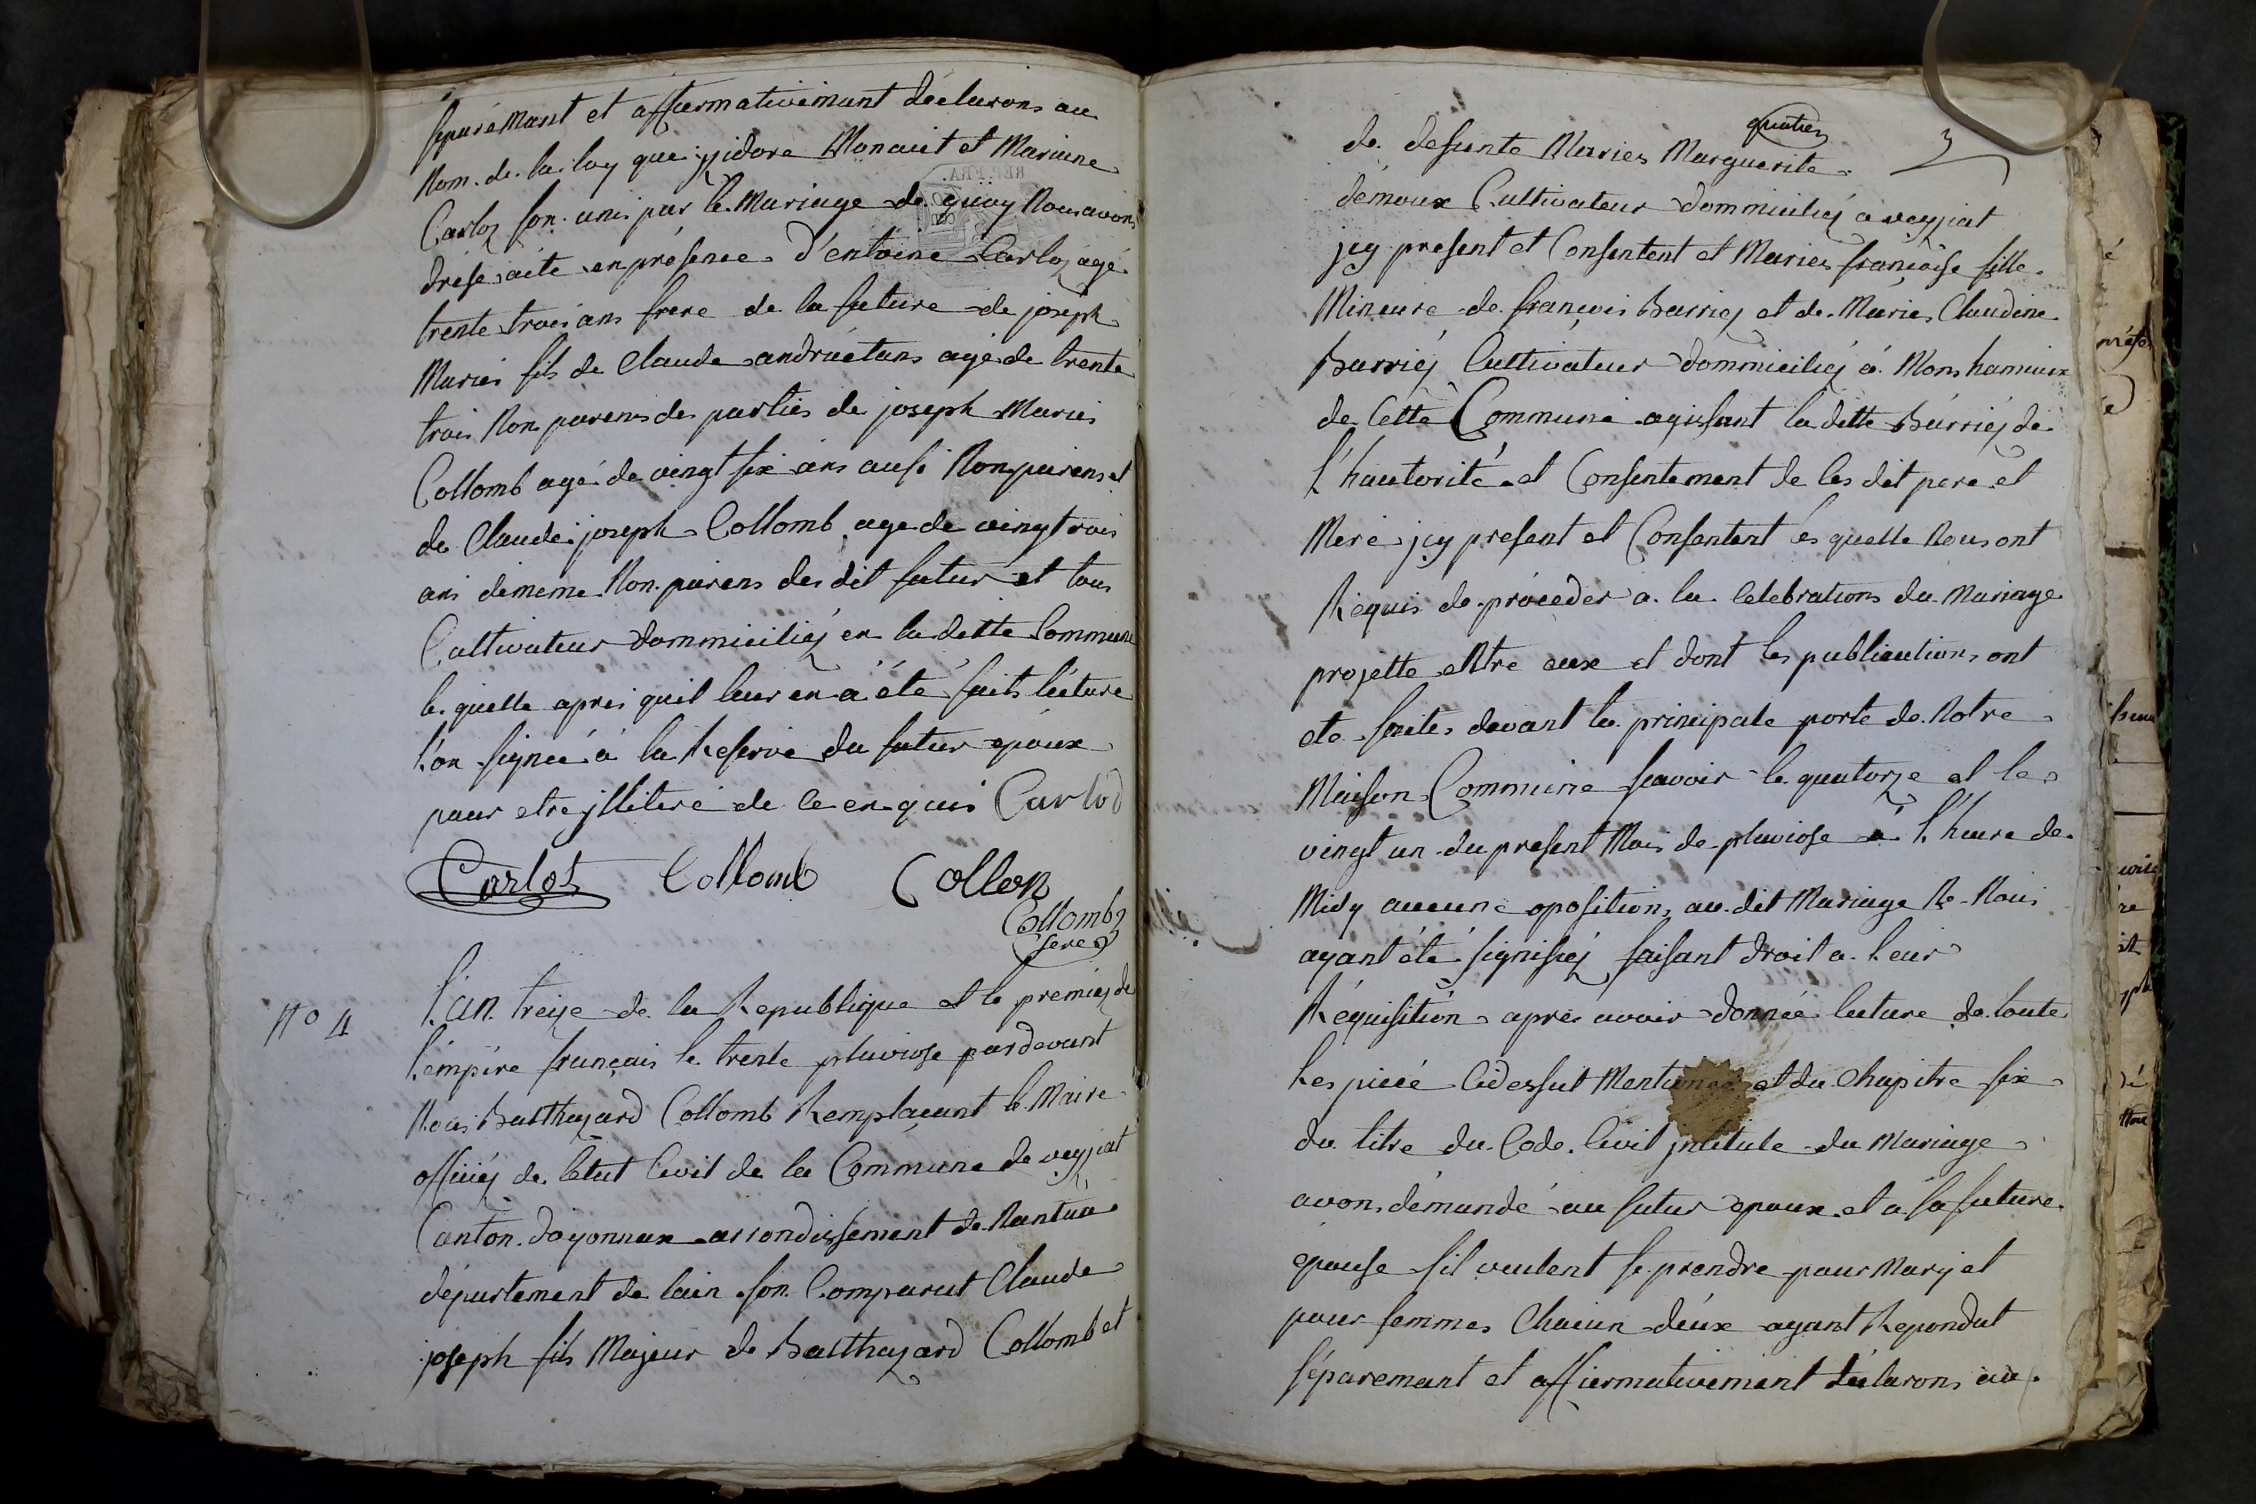 séparémant et affiermativémant déclarons au
Nom de la loy que jsidore Monait et Mariane
Carloz son unis par le Mariage de quoy Nous avons
drésé acte enprésence d'entoine Carloz agé
trente trois ans frere de la future de joseph
Maries fils de Claude andruétans agé de trente
trois Non parens des parties de joseph Maries
Collomb agé de vingt six ans ausi Non parens et
de Claude joseph Collomb age de vingt trois
ans démeme Non parens des dit futur et tous
Cultivateur dommiciliéz en la ditte Commune
le quelle apres quil leur en a été faits lécture
l'on signeé à la Reserve du futur epoux
pour etre jlliteré de ce enquis Carlod
Carlot Collomb Collon
Collomb
N° 4
L'an treize de la Republique et le premiéz de
l'émpire français le trente pluviose pardevant
Nous Balthazard Collomb Remplaçant le Maire
officiéz de létat Civil de la Commune de veyziat
Canton doyonnax arrondissement de Nantua
département de lain son Comparut Claude
joseph fils Majeur de Balthazard Collomb et
quatre
3
de defunte Maries Marguerite
démoux Cultivateur dommiciliéz a veyziat
jcy present et Consentent et Maries françoise fille
Mineure de françois Barriéz et de Maries Claudine
Barriéz Cultivateur dommiciliéz a Monshamiux
de Cette Commune agissant la ditte Barriéz de
l'hautorité et Consentement de ces dit pere et
Mere jcy present et Consentent lés quelle Nous ont
Réquis de procéder a la Celebrations du Mariage
projette entre eux et dont les publications ont
eté faites devant la principale porte de Notre
Maison Commune scavoir le quatorze et le
vingt un du present Mois de pluviose à l'heure de
Midy aucune oposition au dit Mariage Ne Nous
ayant été signifiéz faisant droit a Leur
Réquisition apres avoir donnée lecture de toute
Les pieéé Cidessut Mentionneé et du Chapitre six
du titre du Code Civil jntitule du Mariage
avons démandé au futur epoux et a sa future
épouse sil veulent se prendre pour Mary et
pour femmes Chacun déux ayant Repondut
séparemant et affiermativémant déclarons au